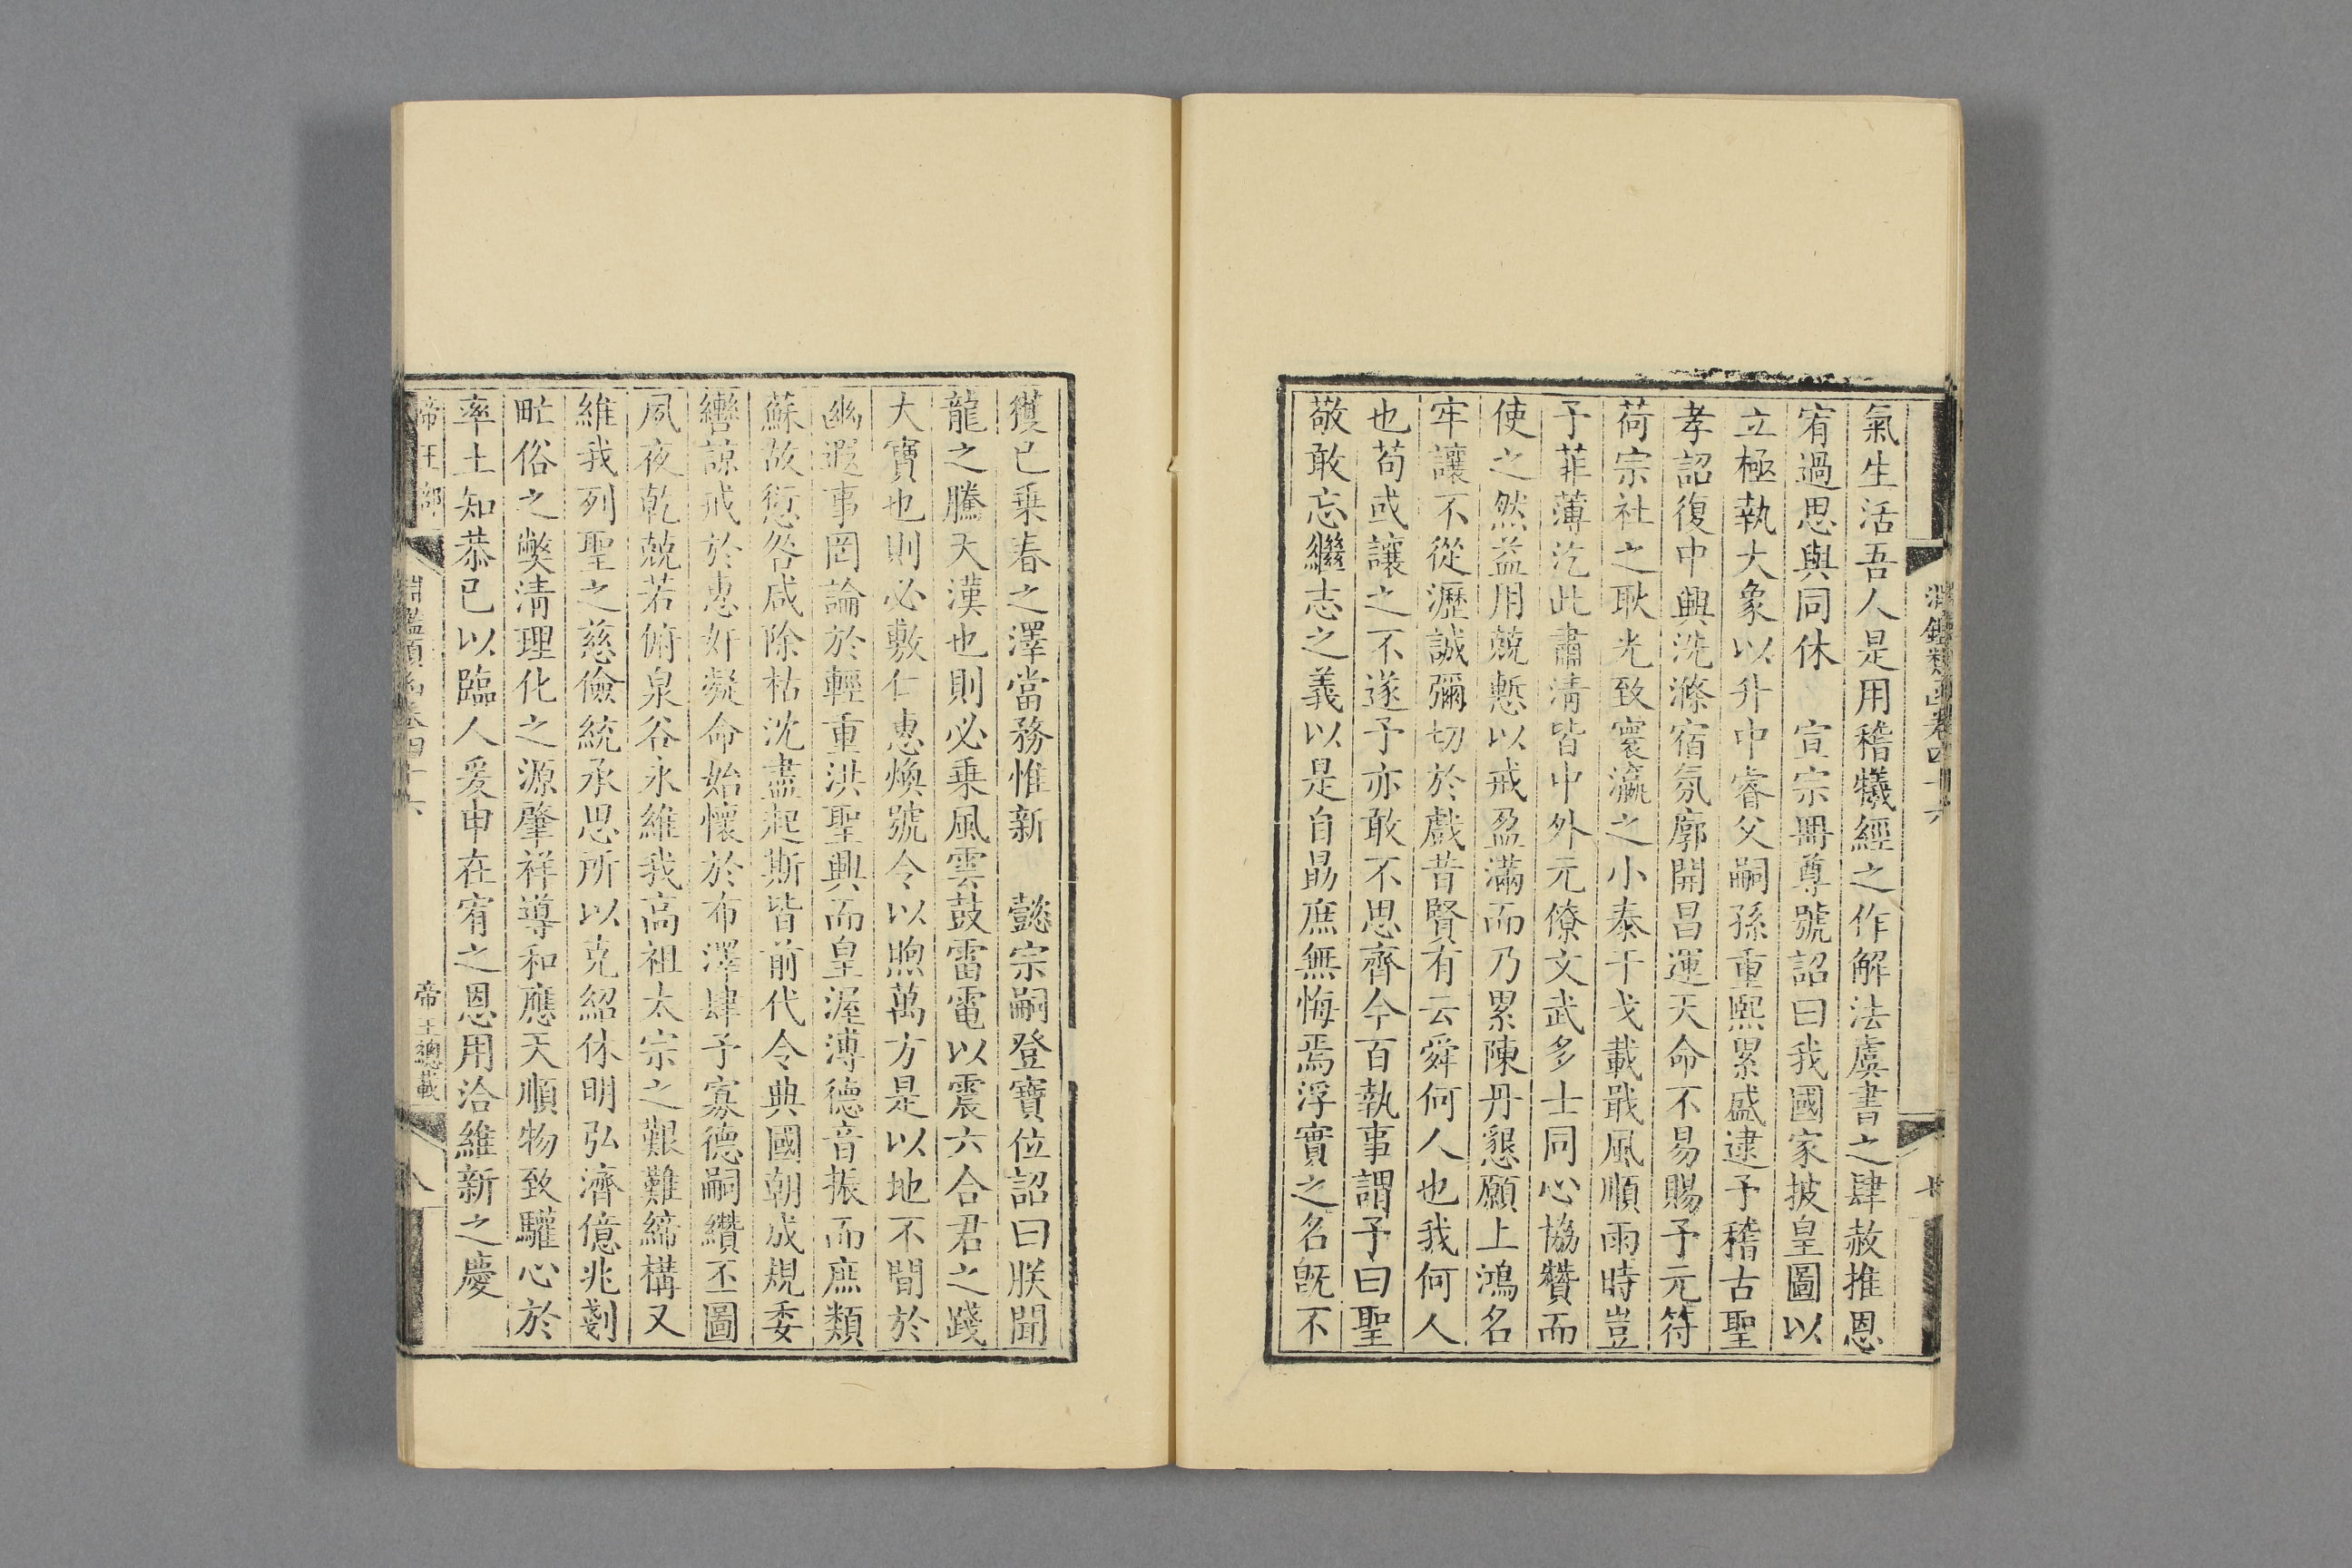 淵鑑類函卷四十六
氣生活吾人是用稽犧經之作解法虞書之肆赦推恩
宥過思與同休　宣宗冊尊號詔曰我國家披皇圖以
立極執大象以升中睿父嗣孫重熙累盛逮予稽古聖
孝詔復中興洗滌宿氛廓開昌運天命不易賜予元符
荷宗社之耿光致寰瀛之小泰干戈載戢風順雨時豈
予菲薄汔此肅清皆中外元僚文武多士同心協贊而
使之然益用兢慙以戒盈滿而乃累陳丹懇願上鴻名
牢讓不從瀝誠彌切於戲昔賢有云舜何人也我何人
也苟或讓之不遂予亦敢不思齊今百執事謂予曰聖
敬敢忘繼志之義以是自勗庶無悔焉浮實之名旣不
獲已乗春之澤當務惟新　懿宗嗣登寶位詔曰朕聞
龍之騰天漢也則必乗風雲鼓雷電以震六合君之踐
大寶也則必敷仁惠煥號令以煦萬方是以地不間於
幽遐事罔論於輕重洪聖興而皇渥溥德音振而庶類
蘇故愆咎咸除枯沈盡起斯皆前代令典國朝成規委
轡諒戒於惠奸凝命始懷於布澤肆予寡德嗣纘丕圖
夙夜乾兢若俯泉谷永維我高祖太宗之艱難締構又
維我列聖之慈儉統承思所以克紹休明弘濟億兆剗
甿俗之獘清理化之源肇祥導和應天順物致驩心於
率土知恭已以臨人爰申在宥之恩用洽維新之慶
帝王部
淵鑑類函卷四十六
帝王總載
八